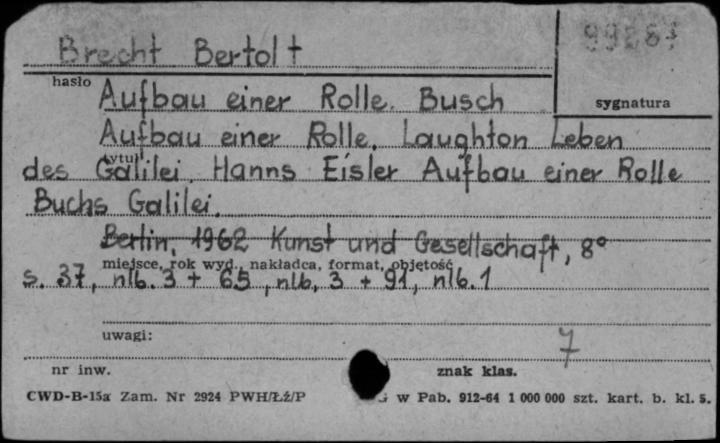 Brecht Bertolt
hasło
Aufbau einer Rolle. Busch
sygnatura
Aufbau einer Rolle. Laughton Leben
tytuł
des Galilei. Hanns Eisler Aufbau einer Rolle
Buchs Galilei.
Berlin, 1962 Kunst und Gesellschaft, 8°
miejsce, rok wyd., nakładca, format, objętość
s. 37, nlb. 3 + 65, nlb, 3 + 91, nlb. 1
uwagi:
7
nr inw.
znak klas.
CWD-B-15a Zam. Nr 2924 PWH/Łź/P
w Pab. 912-64 1 000 000 szt. kart. b. kl. 5.